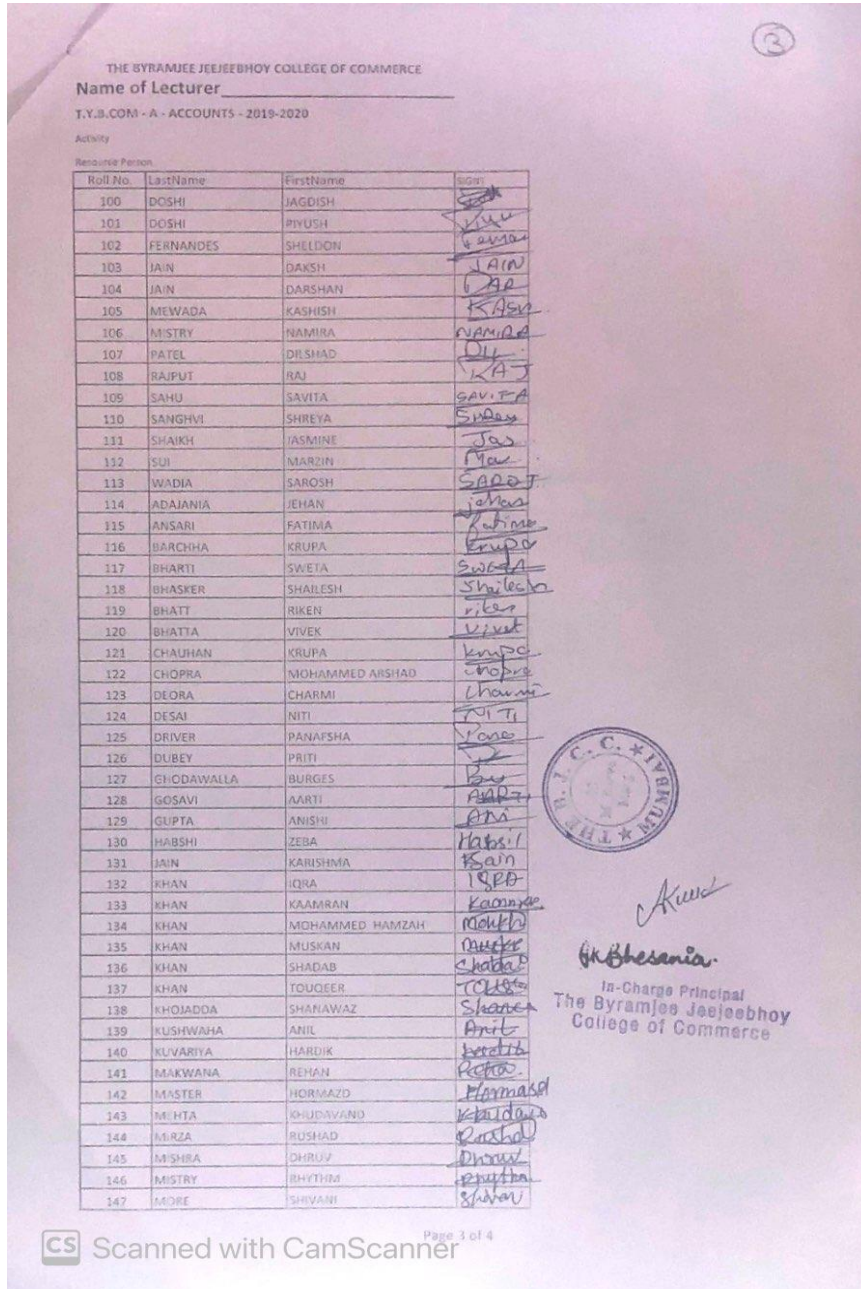 3
THE BYRAMJEE JEEJEEBHOY COLLEGE OF COMMERCE
Name of Lecturer
T.Y.B.COM - A - ACCOUNTS - 2019-2020
Activity
Resource Person
Roll No. LastName FirstName SIGN
100 DOSHI JAGDISH
101 DOSHI PIYUSH
102 FERNANDES SHELDON
103 JAIN DAKSH JAIN
104 JAIN DARSHAN DAR
105 MEWADA KASHISH KASH
106 MISTRY NAMIRA NAMIRA
107 PATEL DILSHAD
108 RAJPUT RAJ RAJ
109 SAHU SAVITA SAVITA
110 SANGHVI SHREYA
111 SHAIKH JASMINE Jas
112 SUI MARZIN Mar
113 WADIA SAROSH
114 ADAJANIA JEHAN jehan
115 ANSARI FATIMA Fatima
116 BARCHHA KRUPA Krupa
117 BHARTI SWETA
118 BHASKER SHAILESH Shailesh
119 BHATT RIKEN riken
120 BHATTA VIVEK Vivek
121 CHAUHAN KRUPA Krupa
122 CHOPRA MOHAMMED ARSHAD chopra
123 DEORA CHARMI Charmi
124 DESAI NITI NITI
125 DRIVER PANAFSHA
126 DUBEY PRITI
127 GHODAWALLA BURGES
128 GOSAVI AARTI AARTI
129 GUPTA ANISHI Ani
130 HABSHI ZEBA
131 JAIN KARISHMA KJain
132 KHAN IQRA IQRA
133 KHAN KAAMRAN
134 KHAN MOHAMMED HAMZAH
135 KHAN MUSKAN
136 KHAN SHADAB
137 KHAN TOUQEER
138 KHOJADDA SHANAWAZ
139 KUSHWAHA ANIL Anil
140 KUVARIYA HARDIK
141 MAKWANA REHAN
142 MASTER HORMAZD
143 MEHTA KHUDAVAND
144 MIRZA RUSHAD
145 MISHRA DHRUV Dhruv
146 MISTRY RHYTHM
147 MORE SHIVANI
THE B.J.C.C. ★ MUMBAI ★
Bhesania
In-Charge Principal
The Byramjee Jeejeebhoy
College of Commerce
Page 3 of 4
CS Scanned with CamScanner